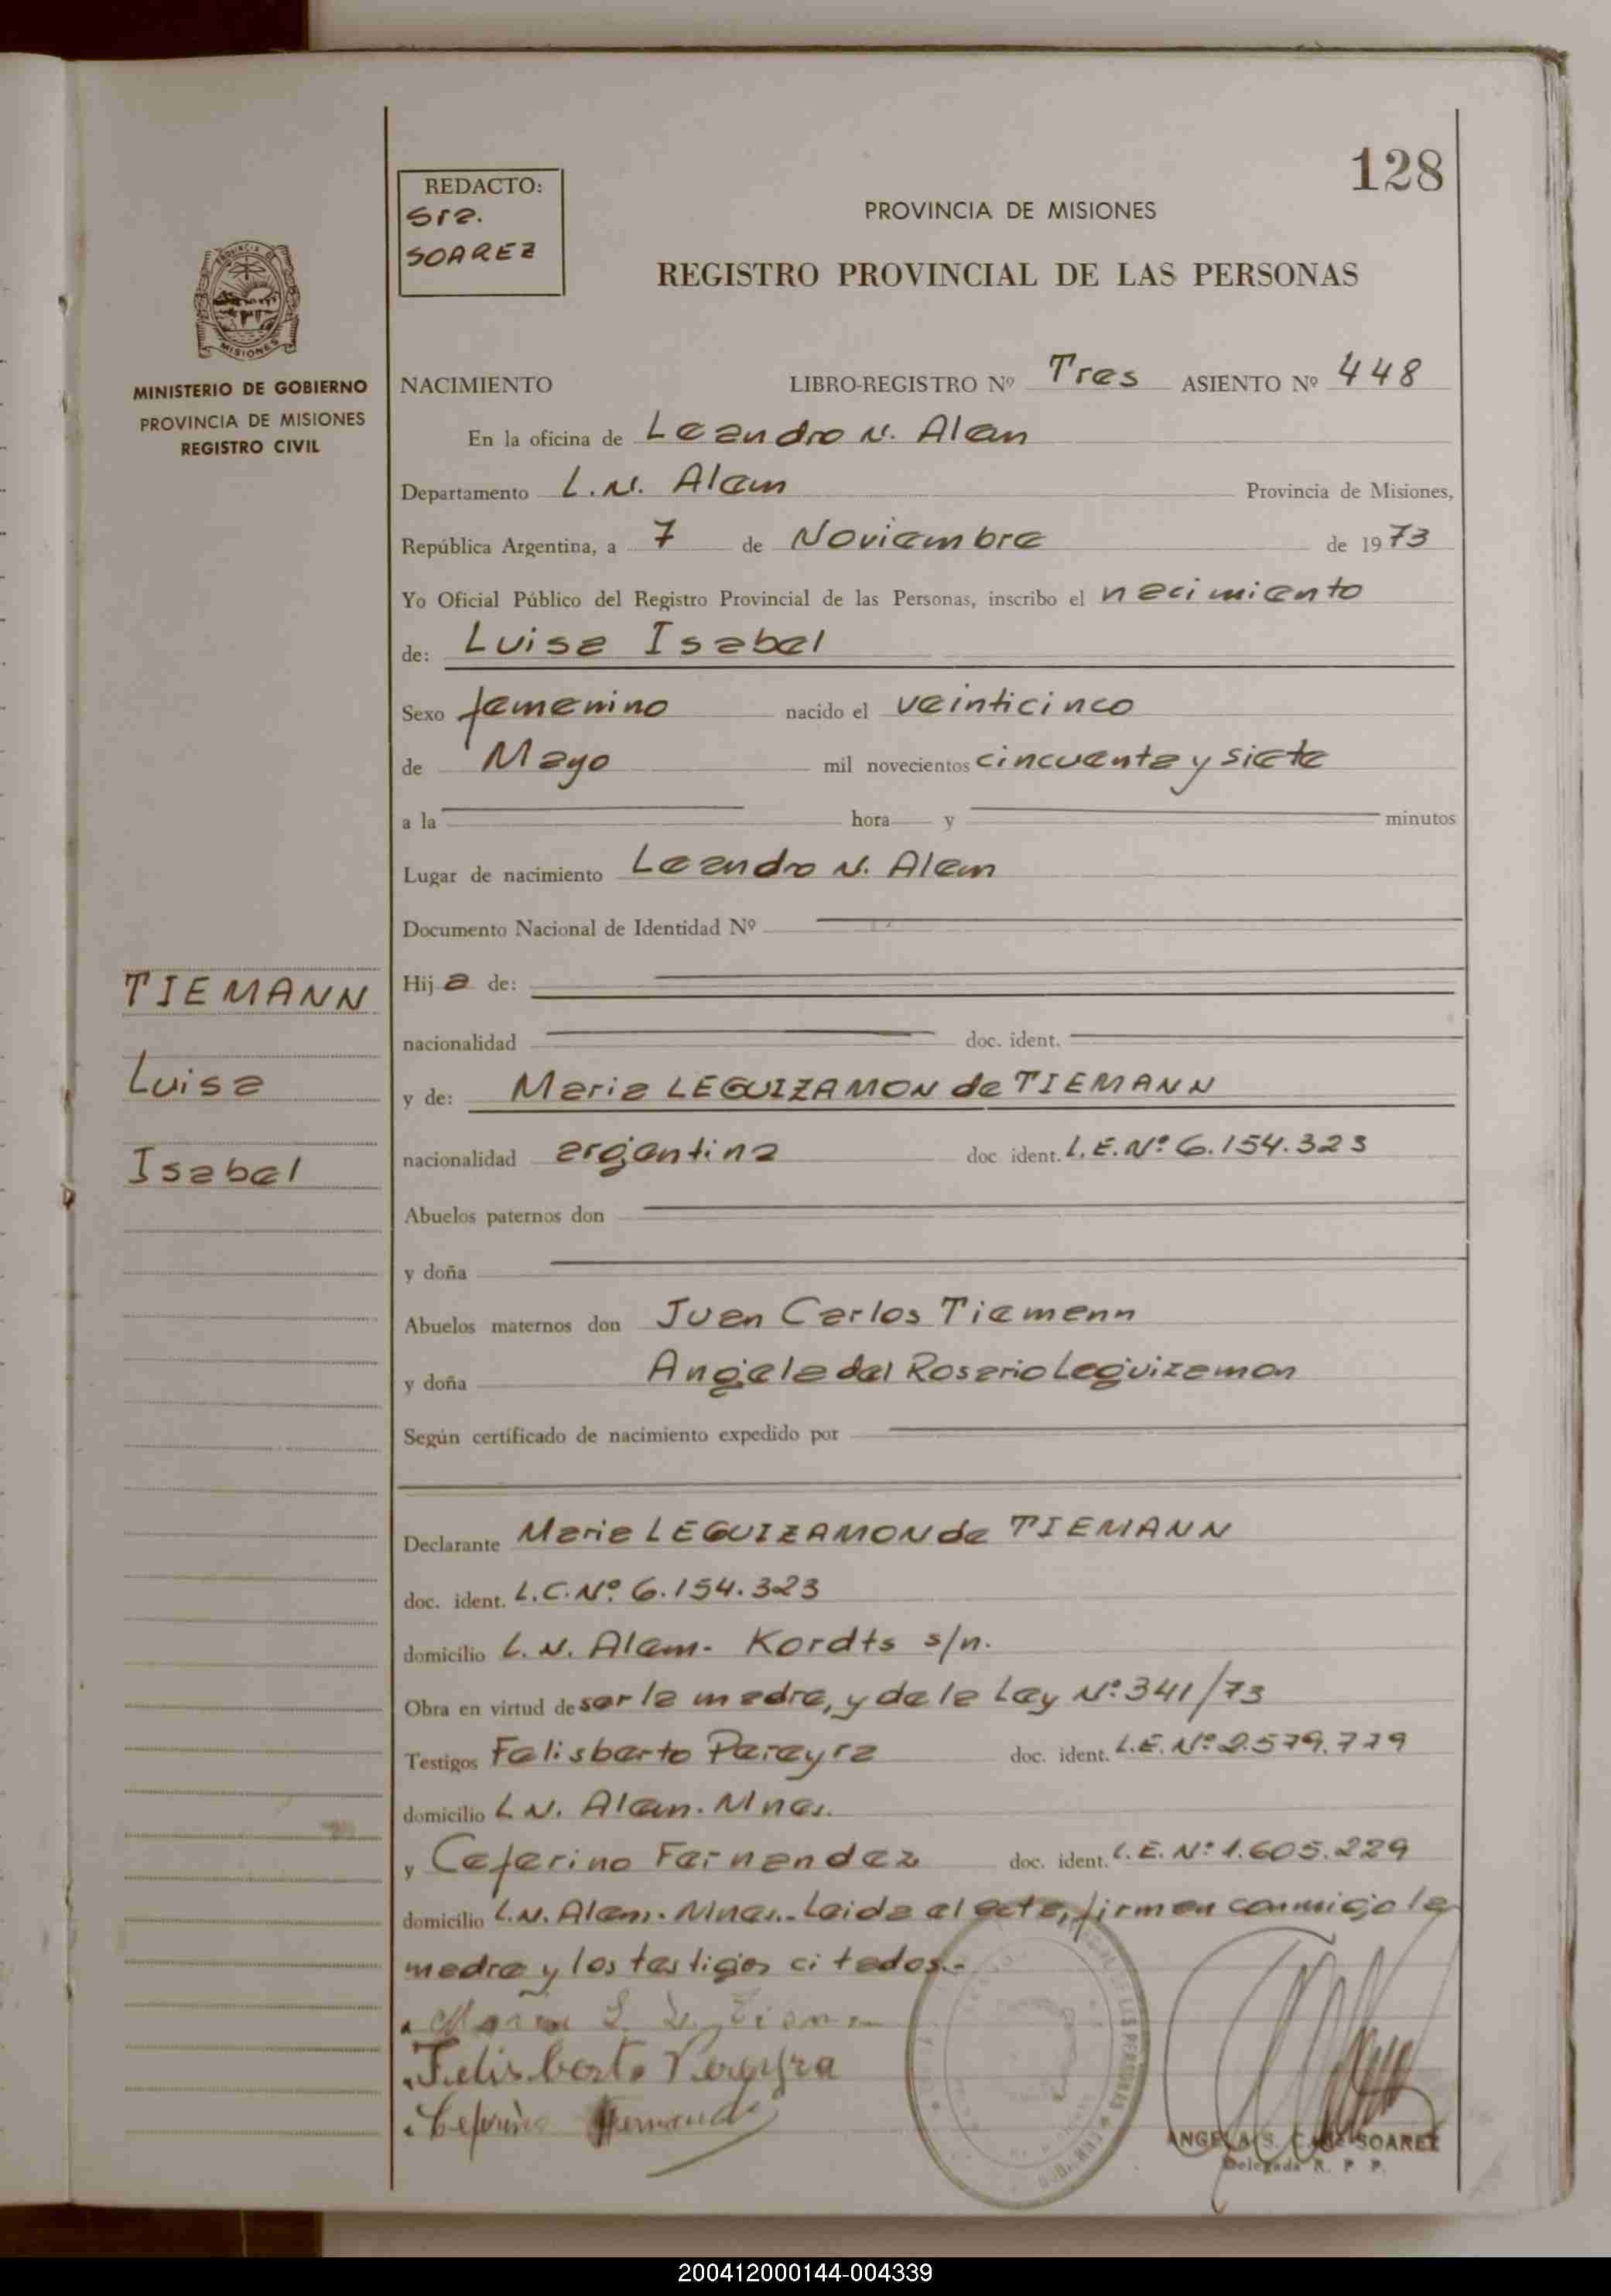 128
REDACTO:
Sra.
SOAREZ
PROVINCIA DE MISIONES
REGISTRO PROVINCIAL DE LAS PERSONAS
MISIONES
MINISTERIO DE GOBIERNO
PROVINCIA DE MISIONES
REGISTRO CIVIL
NACIMIENTO LIBRO-REGISTRO Nº Tres ASIENTO Nº 448
En la oficina de Leandro N. Alem
Departamento L.N. Alem Provincia de Misiones,
República Argentina, a 7 de Noviembre de 1973
Yo Oficial Público del Registro Provincial de las Personas, inscribo el nacimiento
de: Luisa Isabel
Sexo femenino nacido el veinticinco
de Mayo mil novecientos cincuenta y siete
a la hora y minutos
Lugar de nacimiento Leandro N. Alem
Documento Nacional de Identidad Nº
Hija de:
nacionalidad doc. ident.
TIEMANN
Luisa
Isabel
y de: Maria LEGUIZAMON de TIEMANN
nacionalidad argentina doc ident. L.E.Nº 6.154.323
Abuelos paternos don
y doña
Abuelos maternos don Juan Carlos Tiemann
y doña Angela del Rosario Leguizamon
Según certificado de nacimiento expedido por
Declarante Maria LEGUIZAMON de TIEMANN
doc. ident. L.C.Nº 6.154.323
domicilio L.N. Alem- Kordts s/n.
Obra en virtud de ser la madre, y de la Ley Nº 341/73
Testigos Felisberto Pereyra doc. ident. L.E. Nº 2.579.779
domicilio L N. Alem. Mnes.
y Ceferino Fernandez doc. ident. L.E. Nº 1.605.229
domicilio L.N. Alem. Mnes.- Leida el acta, firman conmigo la
madre y los testigos citados.-
Maria L de
Felisberto Pereyra
Ceferino Fernandez
ANGELA S. SOAREZ
Delegada R. P. P.
200412000144-004339